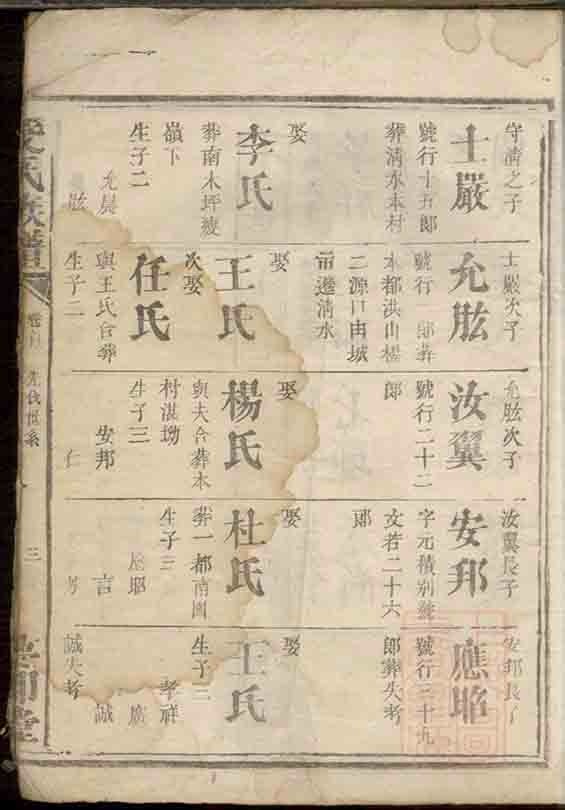 守清之子
士嚴
號行十五郎
葬清水本村
娶
李氏
葬南木坪坡
嶺下
生子二
允晨
肱
士嚴次子
允肱
號行 郎葬
本都洪山楊
二源口由城
而邊清水
娶
王氏
次娶
任氏
與王氏合葬
生子二
允肱次子
汝翼
號行二十二
郎
娶
楊氏
與夫合葬本
村湛坳
生子三
安邦
仁
汝翼長子
安邦
字元積別號
文若二十六
郎
娶
杜氏
葬一都南園
生子三
應耶
言
安邦長子
應耶
號行三十九
郎葬失考
娶
王氏
生子三
孝祥
廣
誠
誠失考
氏族譜
先代世系
三